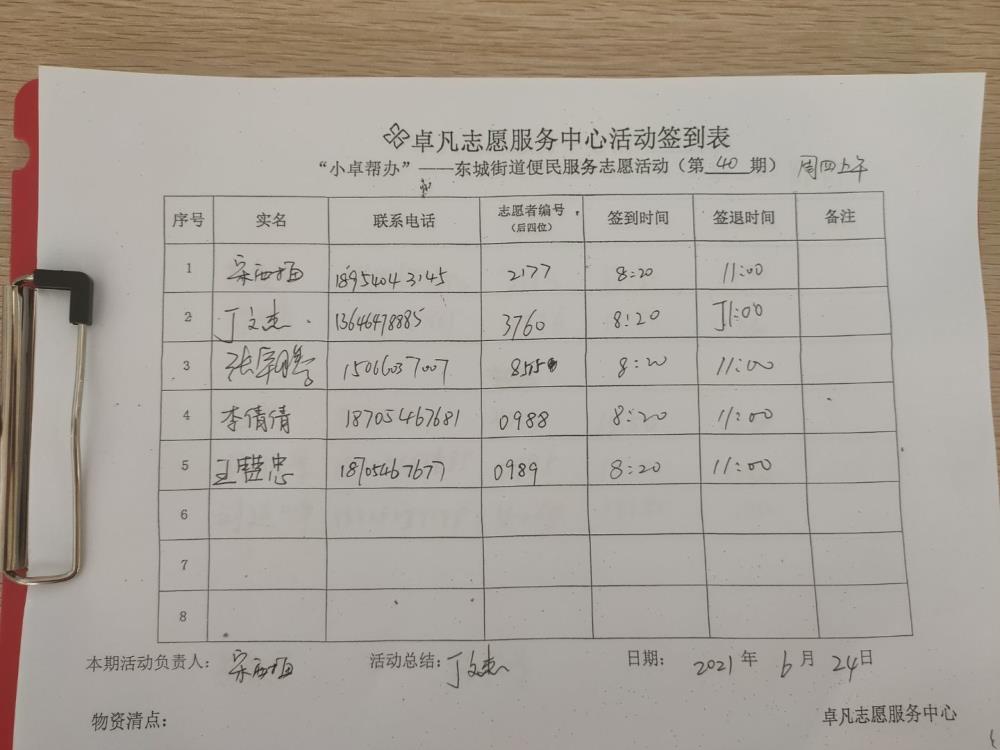 卓凡志愿服务中心活动签到表
“小卓帮办”——东城街道便民服务志愿活动（第 40 期） 周四上午
序号 实名 联系电话 志愿者编号（后四位） 签到时间 签退时间 备注
1 18954043145 2177 8:20 11:00
2 丁文杰 13646478885 3760 8:20 11:00
3 15066037007 8:20 11:00
4 李倩倩 18705467681 0988 8:20 11:00
5 18705467677 0989 8:20 11:00
6
7
8
本期活动负责人： 活动总结：丁文杰 日期： 2021 年 6 月 24日
物资清点： 卓凡志愿服务中心